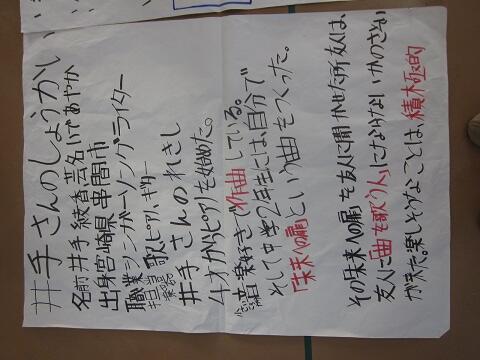 井手さんのしょうかい
名前 井手 綾香 芸名 いであやか
出身 宮崎県 串間市
職業 シンガーソングライター
担当楽器 歌、ピアノ、ギター
井手さんのれきし
4才からピアノを始めた。
音楽好きで作曲している。
そして中学2年生には、自分で
「未来への扉」という曲をつくった。
その未来への扉を友人に聞かせた所友人は、
友人に曲を歌う人にならないかのさそい
が来た。楽しそうなことは、積極的